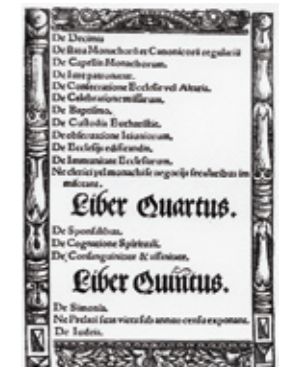 De Decimis
De statu Monachorũ et Canonicorũ regulariũ
De Capellis Monachorum.
De Iure patronatus.
De Consecratione Ecclesię vel Altaris.
De Celebratione missarum.
De Baptismo.
De Custodia Eucharistię.
De observatione Ieiuniorum.
De Ecclesijs edificandis.
De Immunitate Ecclesiarum.
Ne clerici vel monachi se negocijs secularibus im
misceant.
Liber Quartus.
De Sponsalibus.
De Cognatione Spirituali.
De Consanguinitate & affinitate.
Liber Quintus.
De Simonia.
Ne Prelati suas vices sub annuo censu exponant.
De Iudeis.